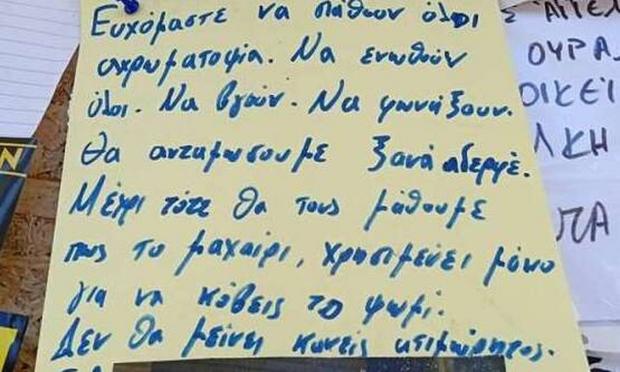 Ευχόμαστε να πάθουν όλοι
αχρωματοψία. Να ενωθούν
όλοι. Να βγούν. Να φωνάξουν.
Θα ανταμωσουμε ξανά αδερφέ.
Μέχρι τότε θα τους μάθουμε
πως το μαχαίρι, χρησιμεύει μόνο
για να κόβεις το ψωμί.
Δεν θα μείνει κανείς ατιμώρητος.
ΟΥΡΑ
ΟΙΚΕΙ
ΛΚΗ